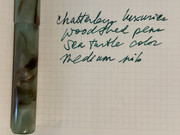 chatterley luxuries
woodshed pens
sea turtle color
medium nib